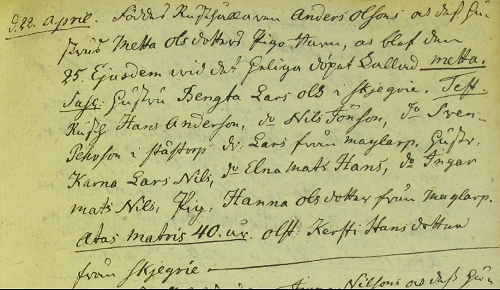 d. 22. April. Föddes Rusthållaren Anders Olsons och dess Hu-
strus Metta Olsdotters Pigo Barn, och blef den
25 Ejusdem wid det heliga dopet kallad Metta.
Susc: Hustru Bengta Lars Ols i Skjegrie. Test.
Rusth. Hans Anderson, do Nils Jönson, do Sven
Pehrson i Ståstorp dr: Lars från Maglarp. Hustr.
Karna Lars Nils, do Elna Mats Hans, do Ingar
Mats Nils, Pig: Hanna Olsdotter från Maglarp.
Ætas matris 40. år. obst: Kersti Hans dotter
från Skjegrie
Nilsons och dess Hu-